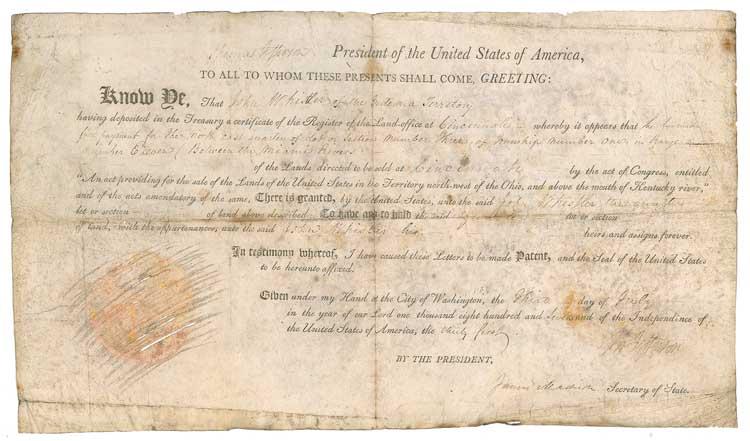 Thomas Jefferson President of the United States of America,
TO ALL TO WHOM THESE PRESENTS SHALL COME, GREETING:
Know Ye, That John Whistler of the Indiana Territory
having deposited in the Treasury a certificate of the Register of the Land-office at Cincinnati whereby it appears that he has made
full payment for the North East quarter of Lot or Section Number Three of Township Number One in Range
Number Eleven (Between the Miami Rivers
of the Lands directed to be sold at Cincinnati by the act of Congress, entitled
"An act providing for the sale of the Lands of the United States in the Territory north-west of the Ohio, and above the mouth of Kentucky river,"
and of the acts amendatory of the same, There is granted, by the United States, unto the said John Whistler the quarter
lot or section of land above described: To have and to hold the said quarter lot or section
of land, with the appurtenances, unto the said John Whistler his heirs and assigns forever.
In testimony whereof, I have caused these Letters to be made Patent, and the Seal of the United States
to be hereunto affixed.
Given under my Hand at the City of Washington, the third day of July
in the year of our Lord one thousand eight hundred and seven and of the Independence of
the United States of America, the thirty first
Th: Jefferson
BY THE PRESIDENT,
James Madison Secretary of State.